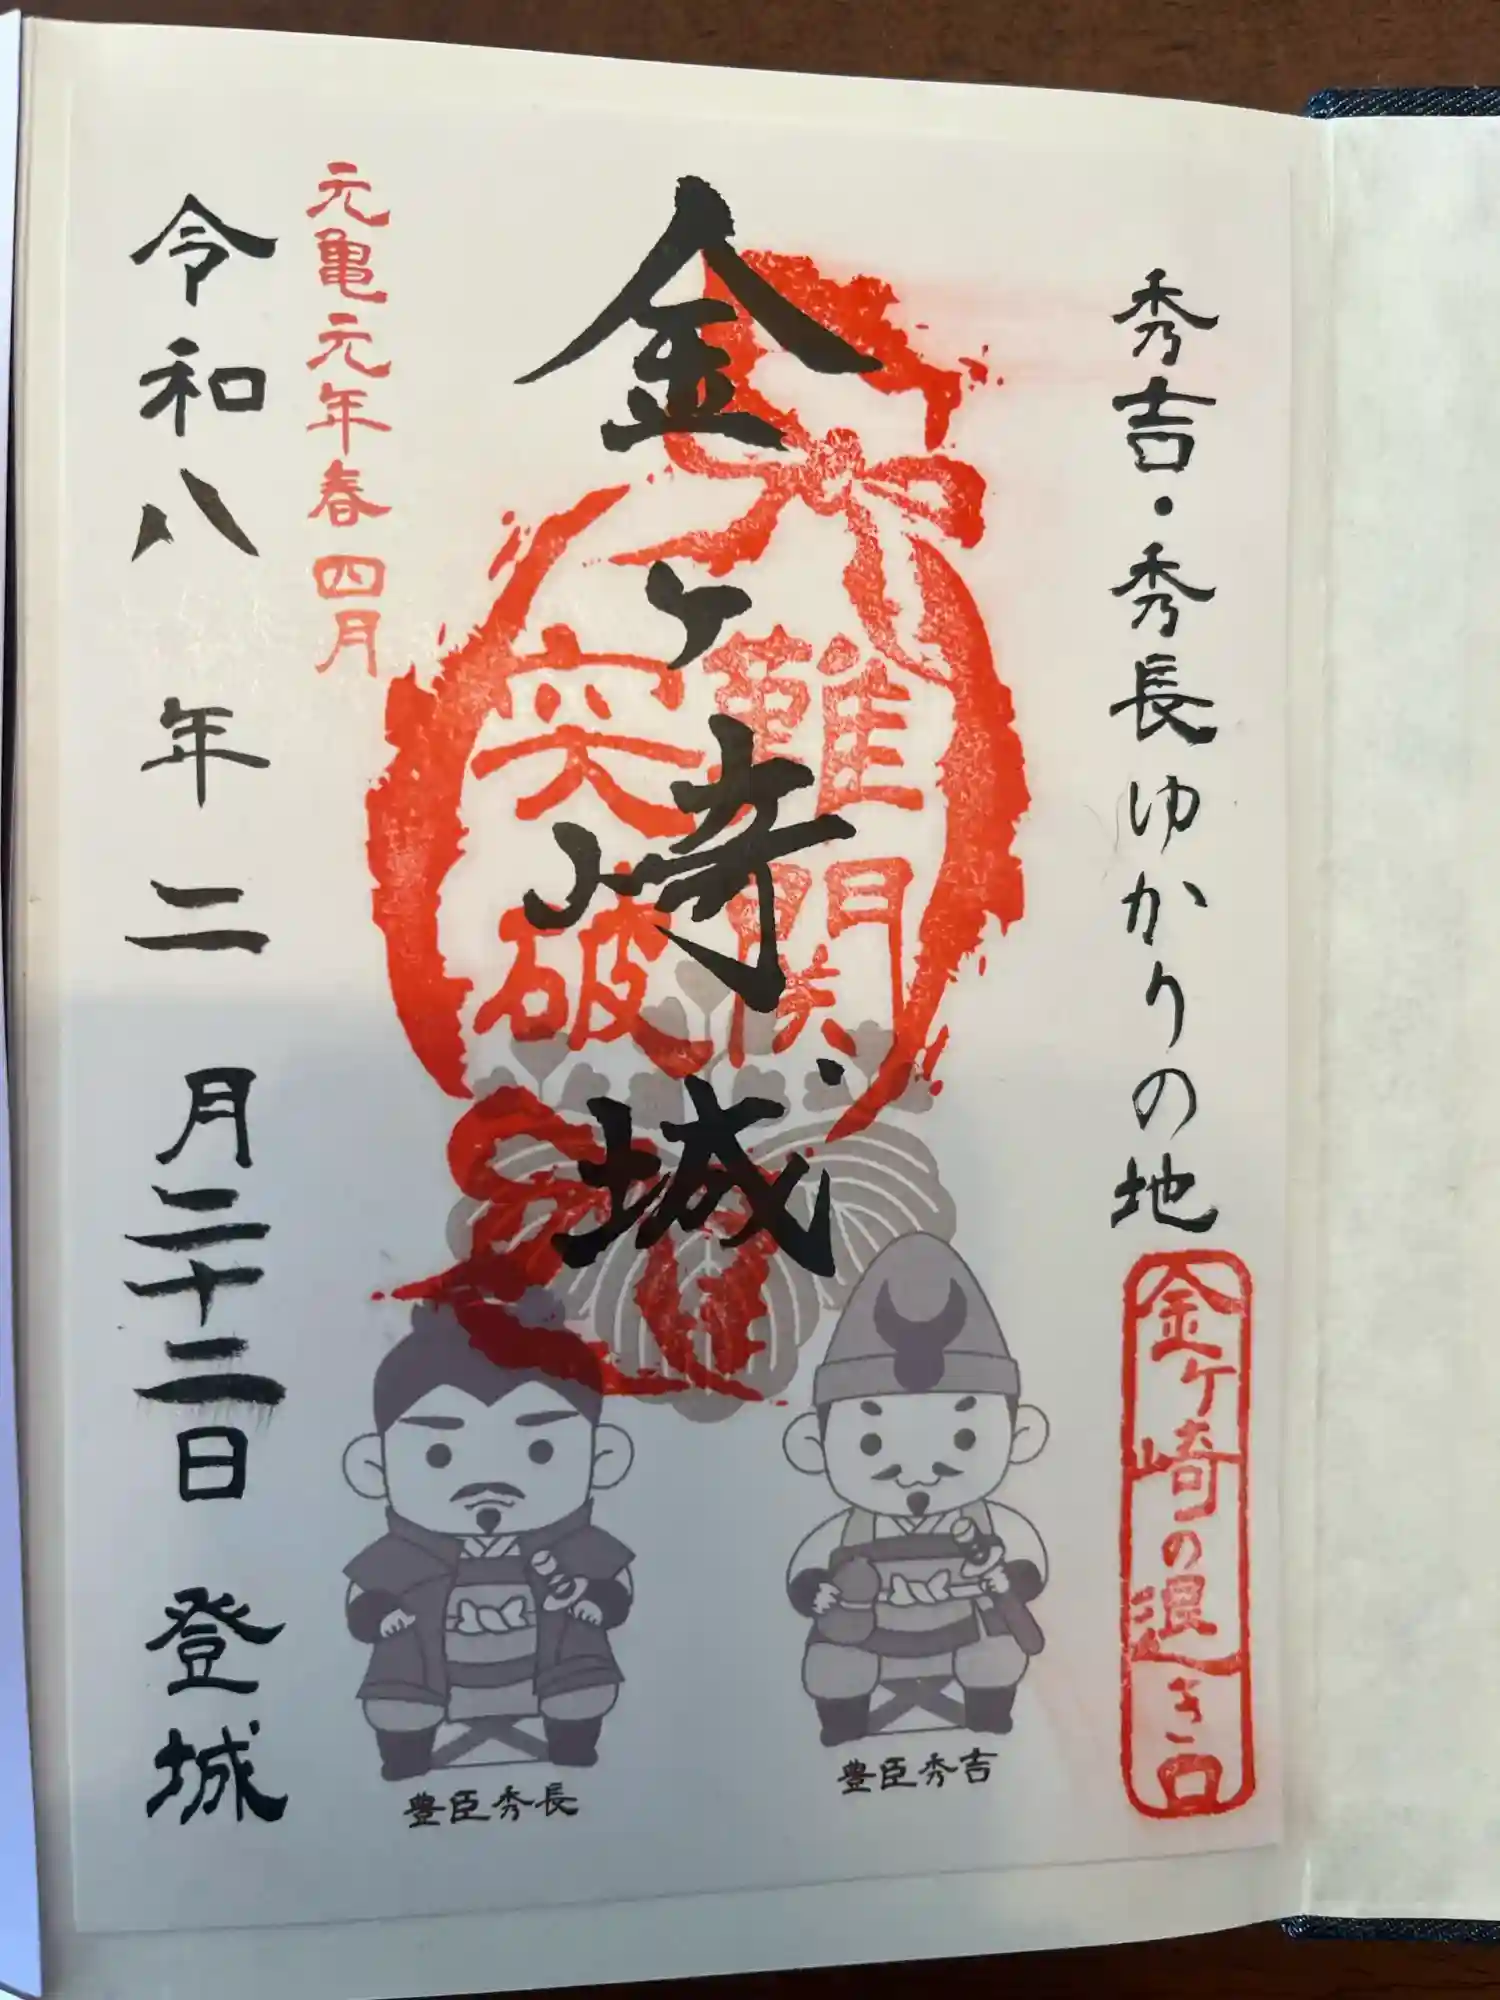 秀吉・秀長ゆかりの地
金ヶ崎の退き口
金ヶ崎城
難関
突破
元亀元年春四月
令和八年二月二十二日登城
豊臣秀吉
豊臣秀長